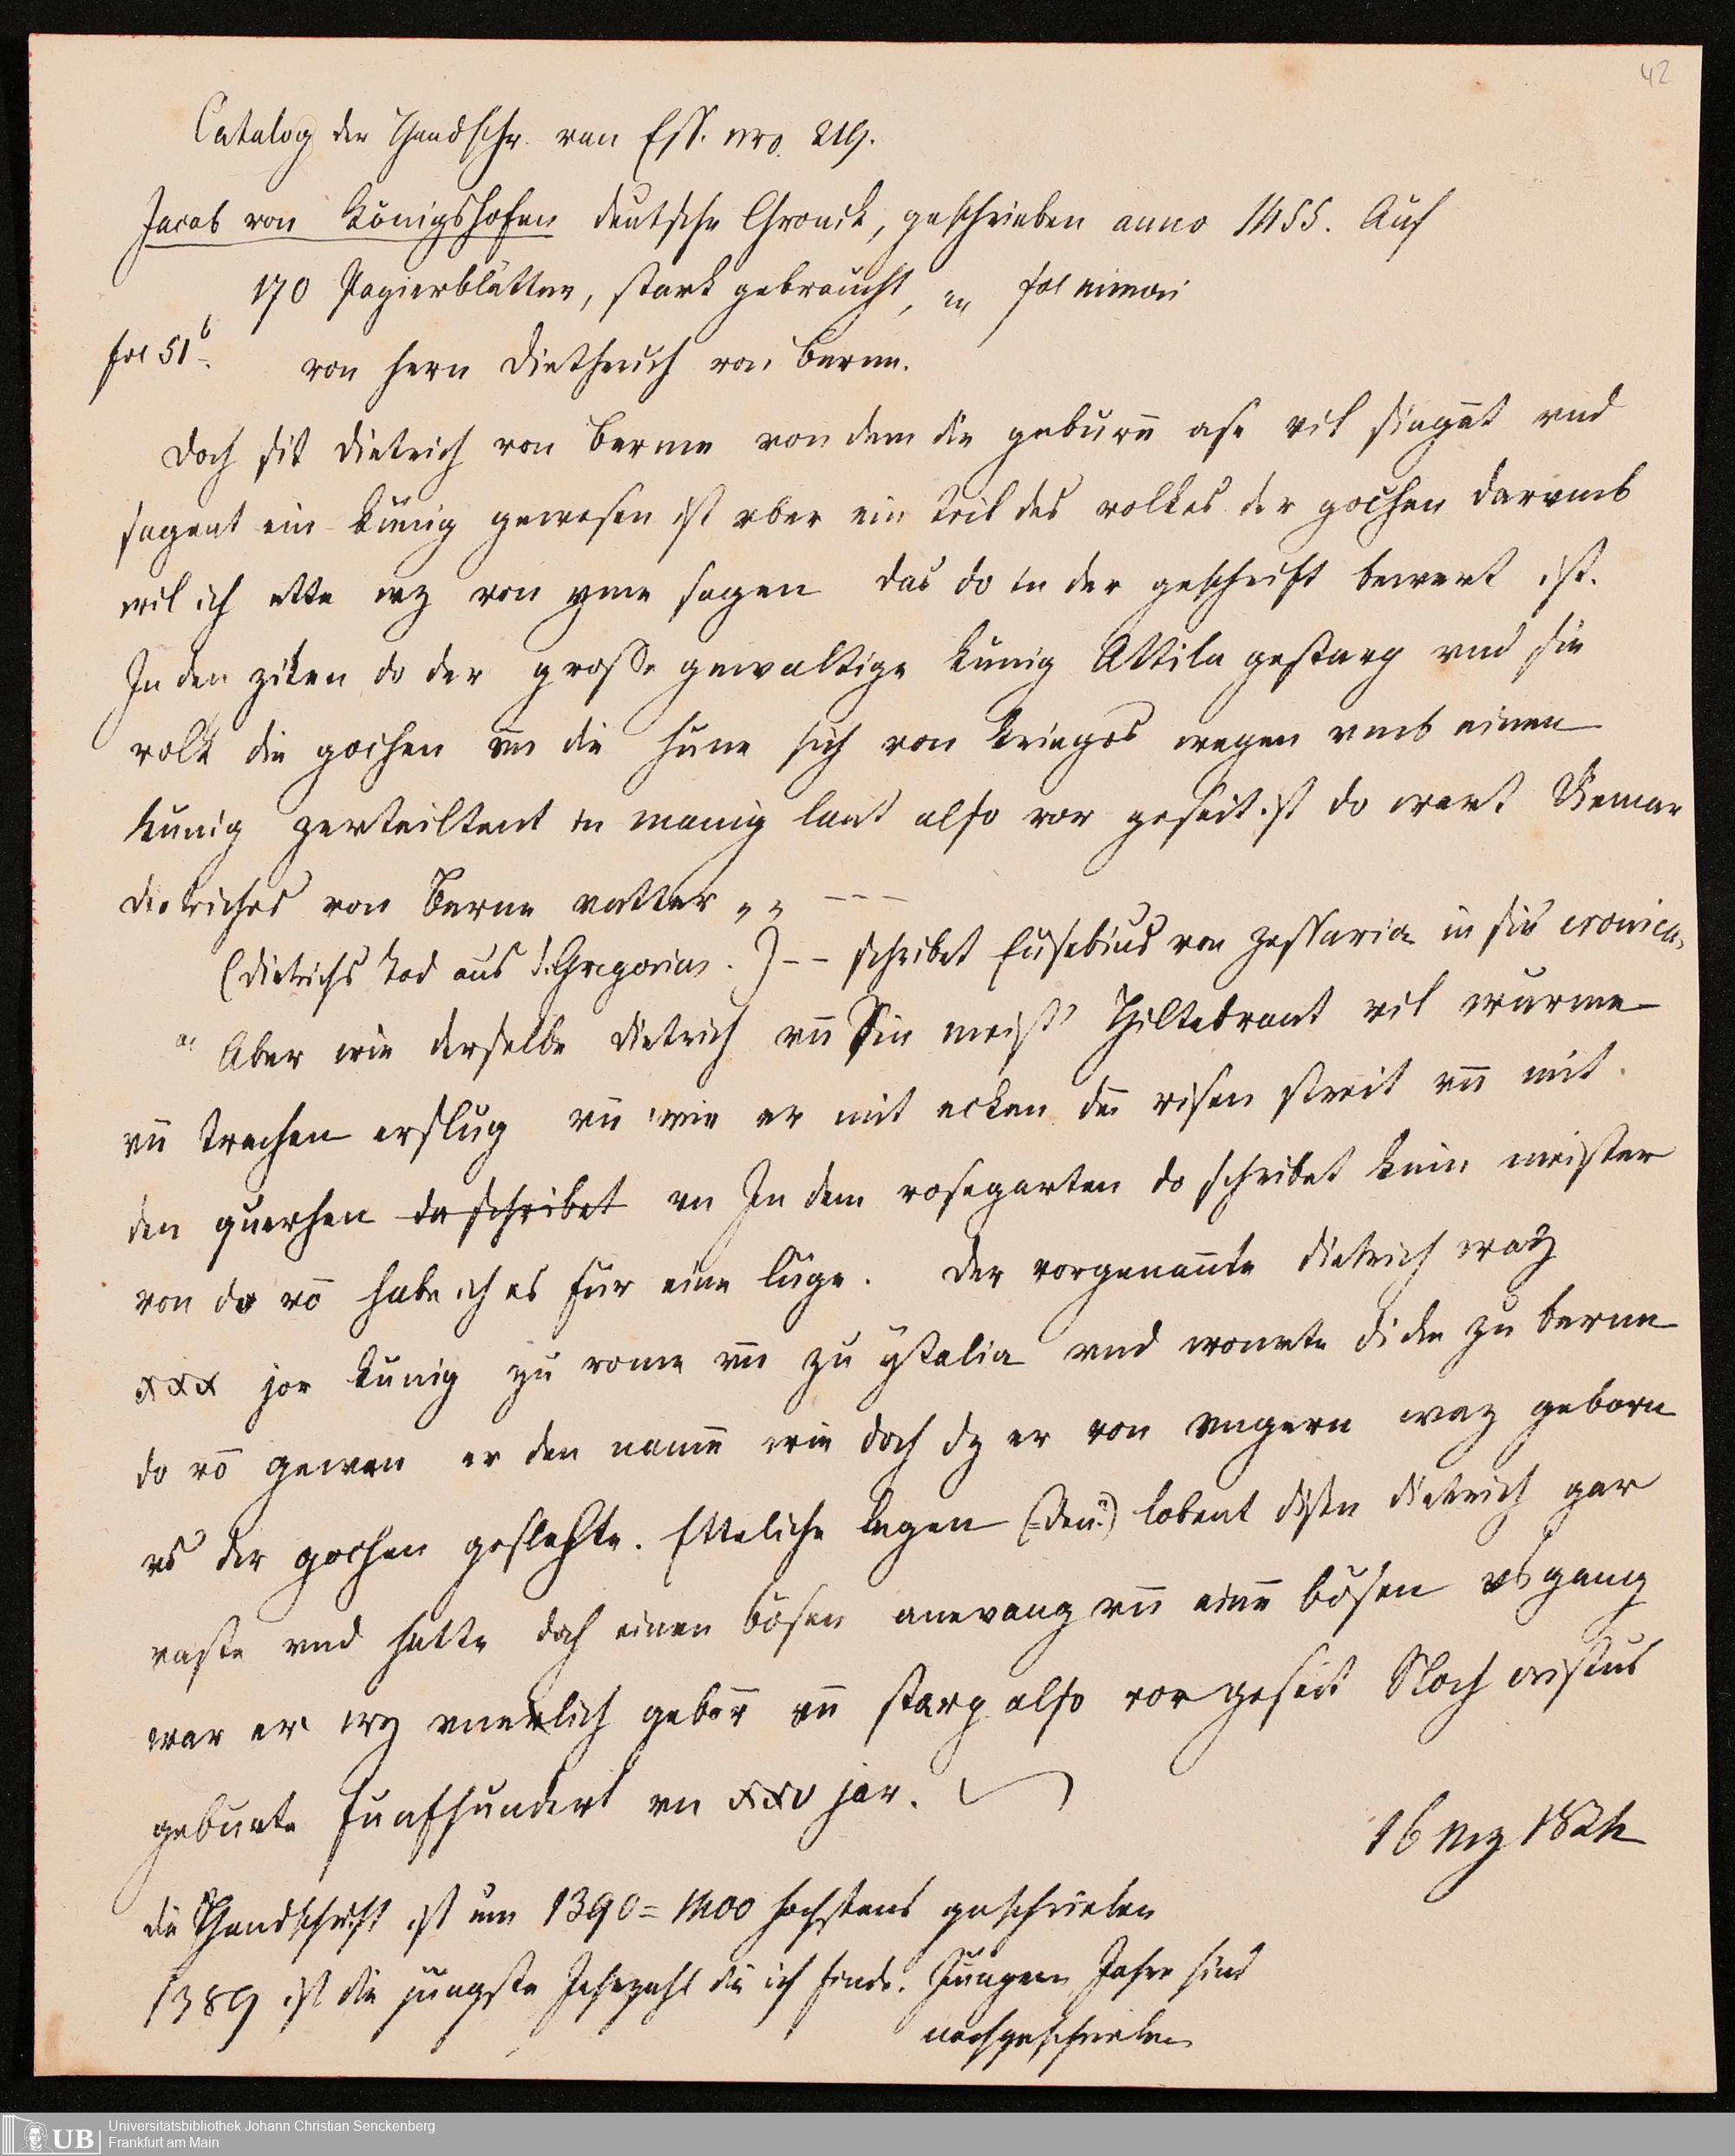 42
Catalog der Handschr. von Ess. nro. 219.
Jacob von Königshofen deutsche Chronik, geschrieben anno 1455. Auf
170 Papierblätter, stark gebraucht, in fol minori
fol 51b. von hern Dietherich von Berne.
Doch sit Dietrich von Berne von dem die geburē ase vil singēt vnd
sagent ein künig gewesen ist vber ein teil des volkes der gochen darvmb
wil ich ette wz von yme sagen das do in der geschrift bewert ist.
In den ziten do der grosse gewaltige kunig Attila gestarp vnd sin
volk die gochen vn die hune sich von krieges wegen vmb einen
kunig zerteiltent in manig lant also vor geseit ist do wart Diemar
dietriches von Berne vatter „ „ ---
(Dietrichs tod aus S. Gregorius.) -- schribet Eusebius von zessaria in sin cronica.
Aber wie derselbe dietrich vn̄ Sin meist' Hiltebrant vil wurme
vn̄ trachen erslug vn̄ wie er mit ecken dē risen streit vn̄ mit
den querhen da schribet vn In dem rosegarten do schribet kein meister
von do vō habe ich es für eine lüge. Der vorgenante dietrich waz
xxx jor kunig zu rome vn zu ytalia vnd wonete dicke zu berne
do vō gewan er den namē wie doch dz er von vngern waz geborn
vs der gochen geslehte. Etteliche legen (= den?) lobent disen dietrich gar
vaste vnd hatte doch einen bösen anevang vn̄ einē bösen vsgang
war er wz vnerlich geborn vn̄ starp also vor geseit Noch cristus
geburte funfhundert vn xxv jar.
16 Mz 1824
die Handschrift ist um 1390 = 1400 hochstens geschrieben
1389 ist die jüngste Jahrzahl die ich finde. Jüngere Jahre sind
nachgeschrieben
UB Universitätsbibliothek Johann Christian Senckenberg
Frankfurt am Main